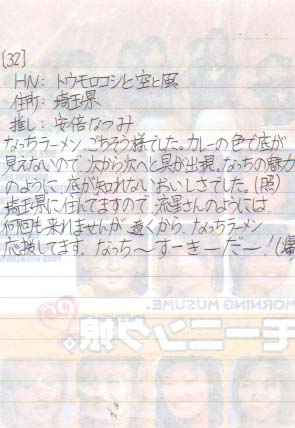 [32]
HN: トウモロコシと空と風
住所: 埼玉県
推し: 安倍なつみ
なっちラーメン、ごちそう様でした。カレーの色で底が
見えないので、次から次へと具が出現。なっちの魅力
のように、底が知れないおいしさでした。(照)
埼玉県に住んでますので、流星さんのようには、
何回も来れませんが、遠くから、なっちラーメン
応援してます。なっち〜すーきーだー!(爆
MORNING MUSUME.
モーニング娘。